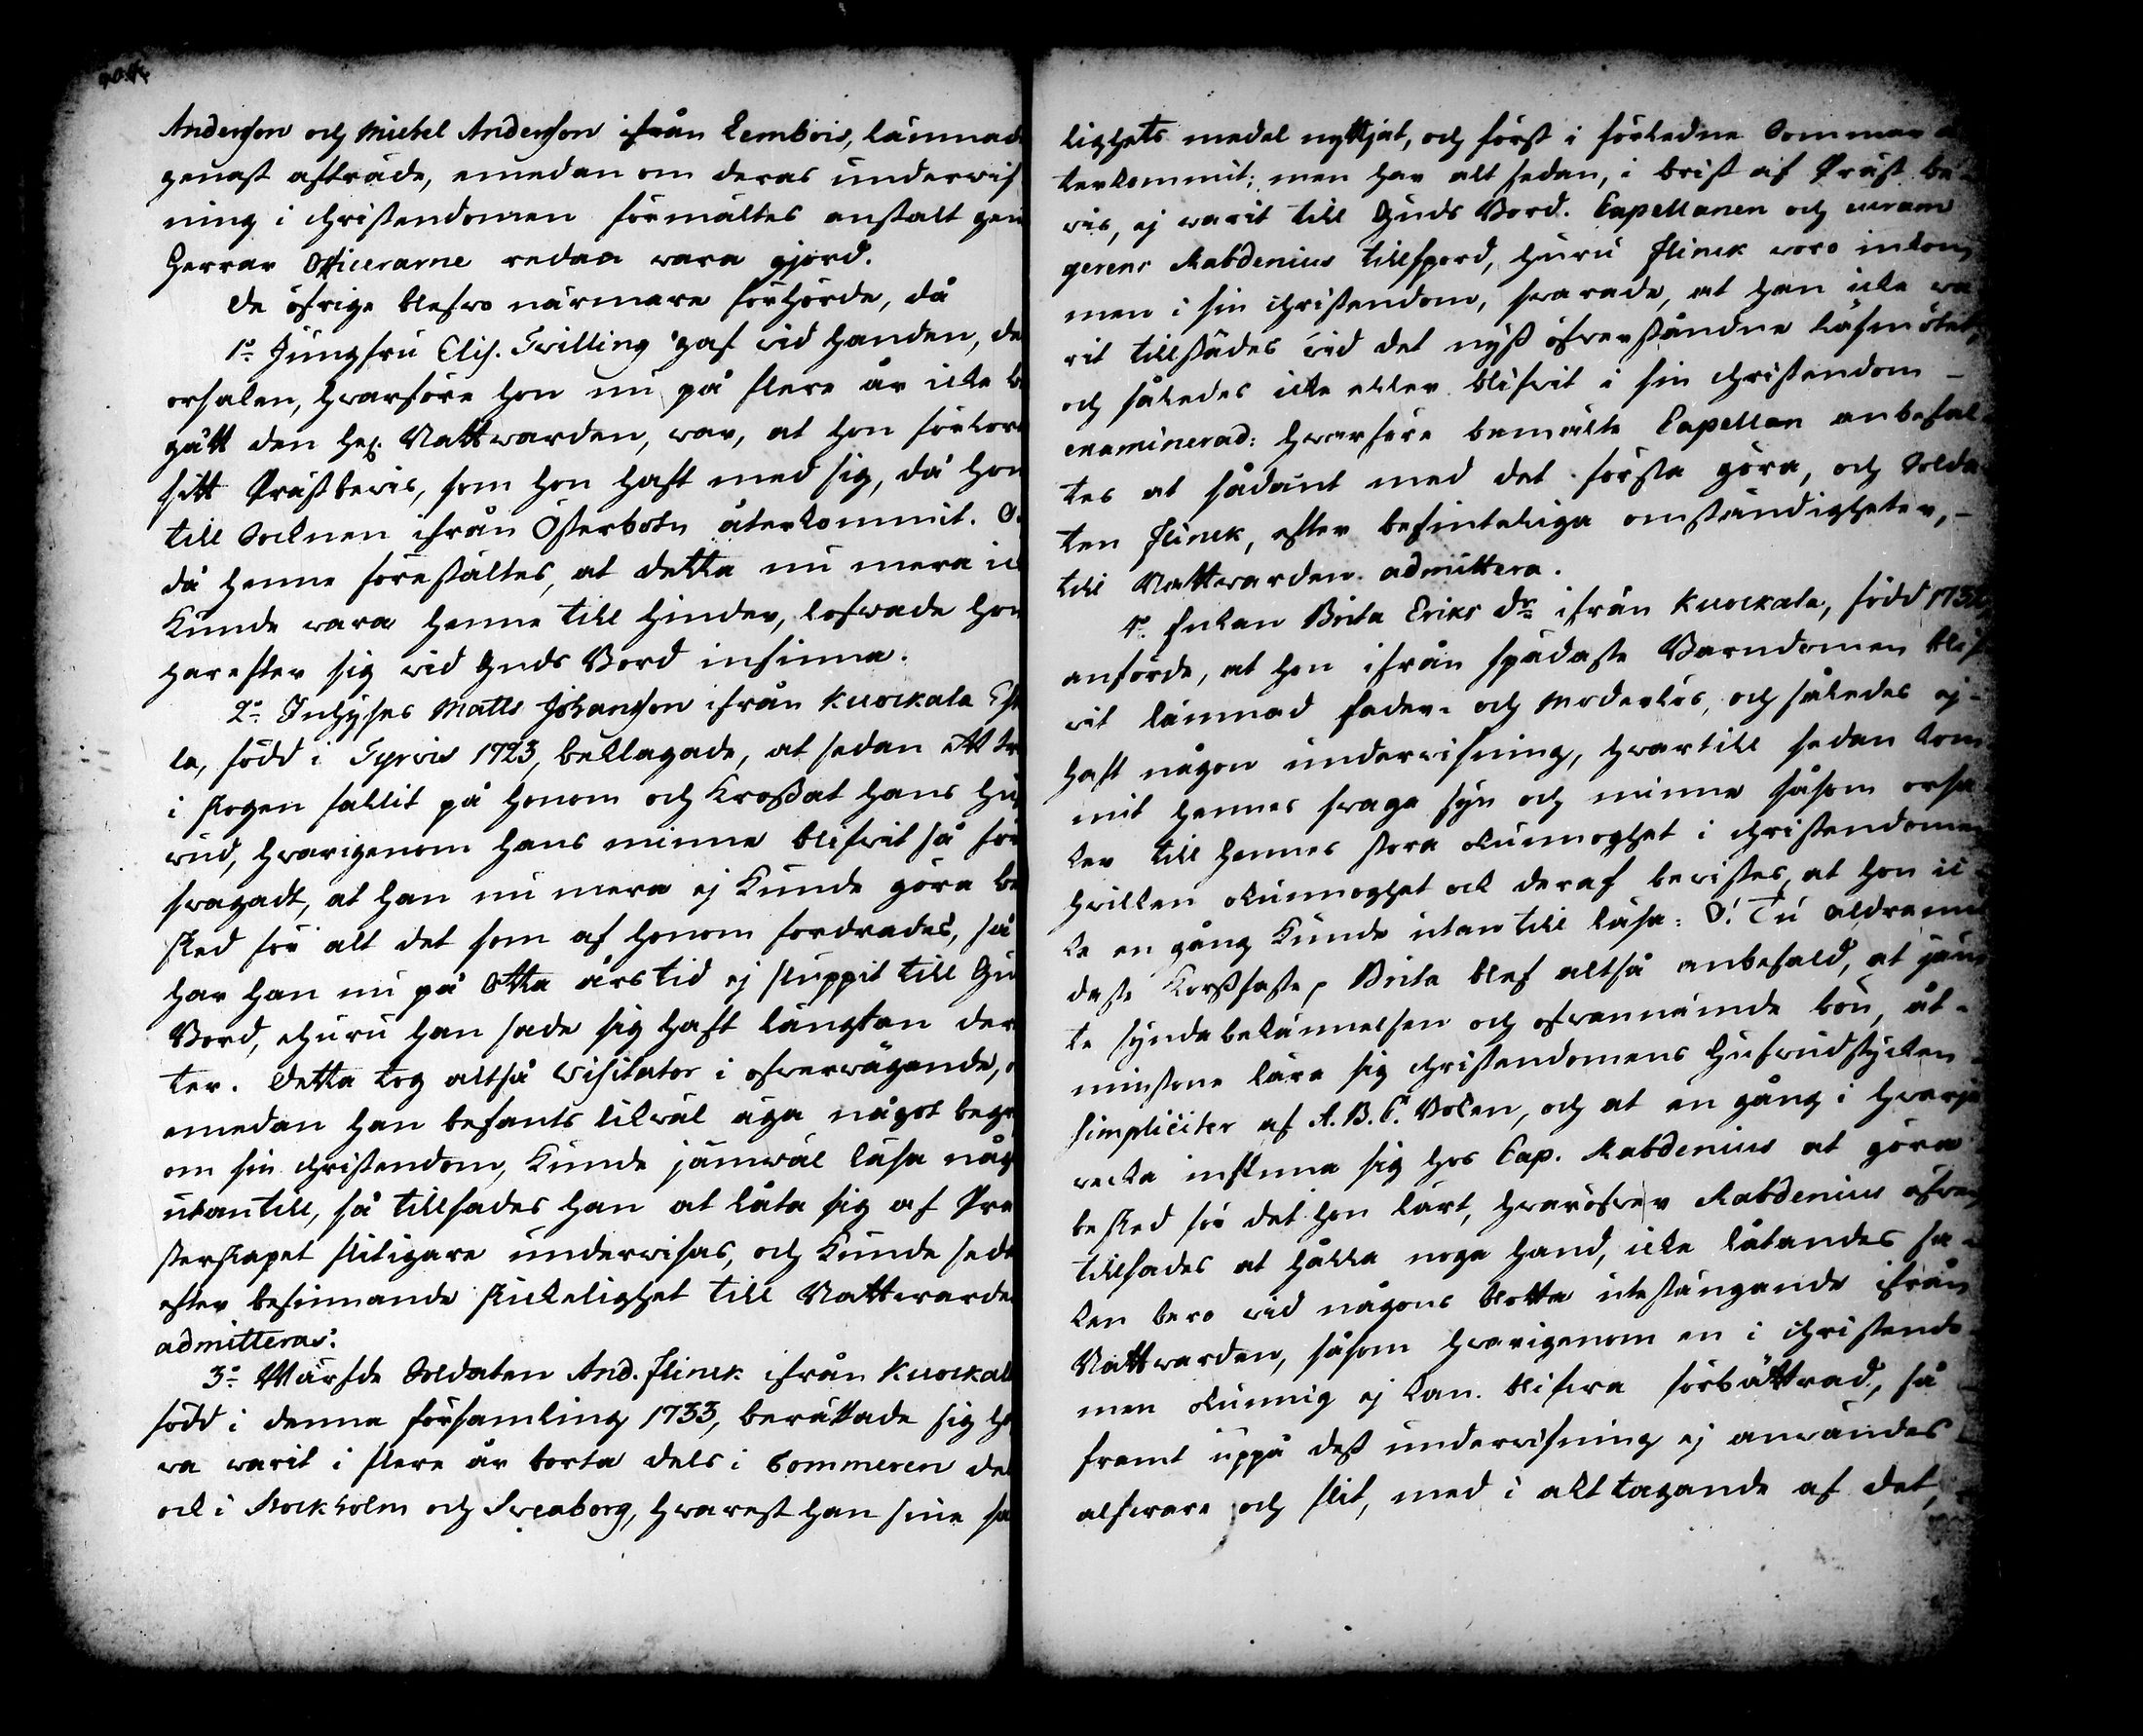 Anderson och Michel Anderson ifrån Lembois, lämnade
genast afträde, emedan om deras underwis
ning i christendomen förmältes anstalt gen
Herrar Officerarne redan wara gjord.
De öfrige blefwo närmare förhörde, då
1:o Jungfru Elis. Twilling gaf wid handen, de
orsaken, hwarföre hon nu på flere år icke be
gått den Hel. Nattwarden, war, at hon förkom
sitt Prästbewis, som hon haft med sig, då hon
till Socknen ifrån Österbotn återkommit. O
då henne föreställtes, at detta nu mera ic
kunde wara henne till hinder, lofwade hon
härefter sig wid Guds Bord infinna.
2:o Inhyses Matts Johansson ifrån Kuockala
la, född i Tyrvis 1723, beklagade, at sedan ett trä
i skogen fallit på honom och krossat hans huf
wud, hwarigenom hans minne blifwit så för
swagadt, at han nu mera ej kunde göra be
sked för alt det som af honom fordrades, så
har han nu på Otta års tid ej sluppit till Gu
Bord, ehuru han sade sig haft längtan der
ter. Detta tog altså Visitator i öfwerwägande,
emedan han befants likwäl äga något begr
om sin christendom, kunde jämwäl läsa någ
utantill, så tillsades han at låta sig af Pre
sterskapet flitigare underwisas, och kunde seda
efter befinnande skickelighet till Nattwarden
admitteras.
3:o Wärfde Soldaten And. Flinck ifrån Kuockala
född i denna församling 1733, berättade sig ha
wa warit i flere år borta dels i Pommeren de
ock i Stockholm och Sweaborg, hwarest han sine sa
lighets medel nyttjat, och först i förledne Sommar å
terkommit; men har alt sedan, i brist af Präst be-
wis, ej warit till Guds Bord. Capellanen och curam
gerens Rabdenius tillspord, huru Flinck woro inkom
men i sin christendom, swarade, at han icke wa
rit tillstädes wid det nyss öfwerståndne läsmötet,
och således icke eller blifwit i sin christendom –
examinerad: hwarföre bemälte Capellan anbefal-
tes at sådant med det första göra, och Solda-
ten Flinck, efter befinteliga omständigheter, –
till Nattwarden admittera.
4:o Enkan Brita Eriks Dr ifrån Kuockala, född
anförde, at hon ifrån spädaste Barndomen blif
wit lämnad fader- och Moderlös, och således ej –
haft någon underwisning, hwartill sedan kom
mit hennes swaga syn och minne såsom orsa
ker till hennes stora okunnoghet i christendomen
hwilken okunnoghet ock deraf bewistes, at hon ic
ke en gång kunde utantill läsa: O! Tu aldramil
daste Korssfäste, Brita blef altså anbefald, at jäm
te syndabekännelsen och ofwannämnde bön, åt-
minstone lära sig christendomens hufwudstycken
simpliciter af A. B. C. Boken, och at en gång i hwarje
wecka infinna sig hos Cap. Rabdenius at göra
besked för det hon lärt, hwaröfwer Rabdenius äfwen
tillsades at hålla noga hand, icke låtandes sa-
ken bero wid någons blotta utestängande ifrån
Nattwarden, såsom hwarigenom en i christendo-
men okunnig ej kan blifwa förbättrad, så
framt uppå dess underwisning ej anwändes
alfware och flit, med i akt tagande af det,